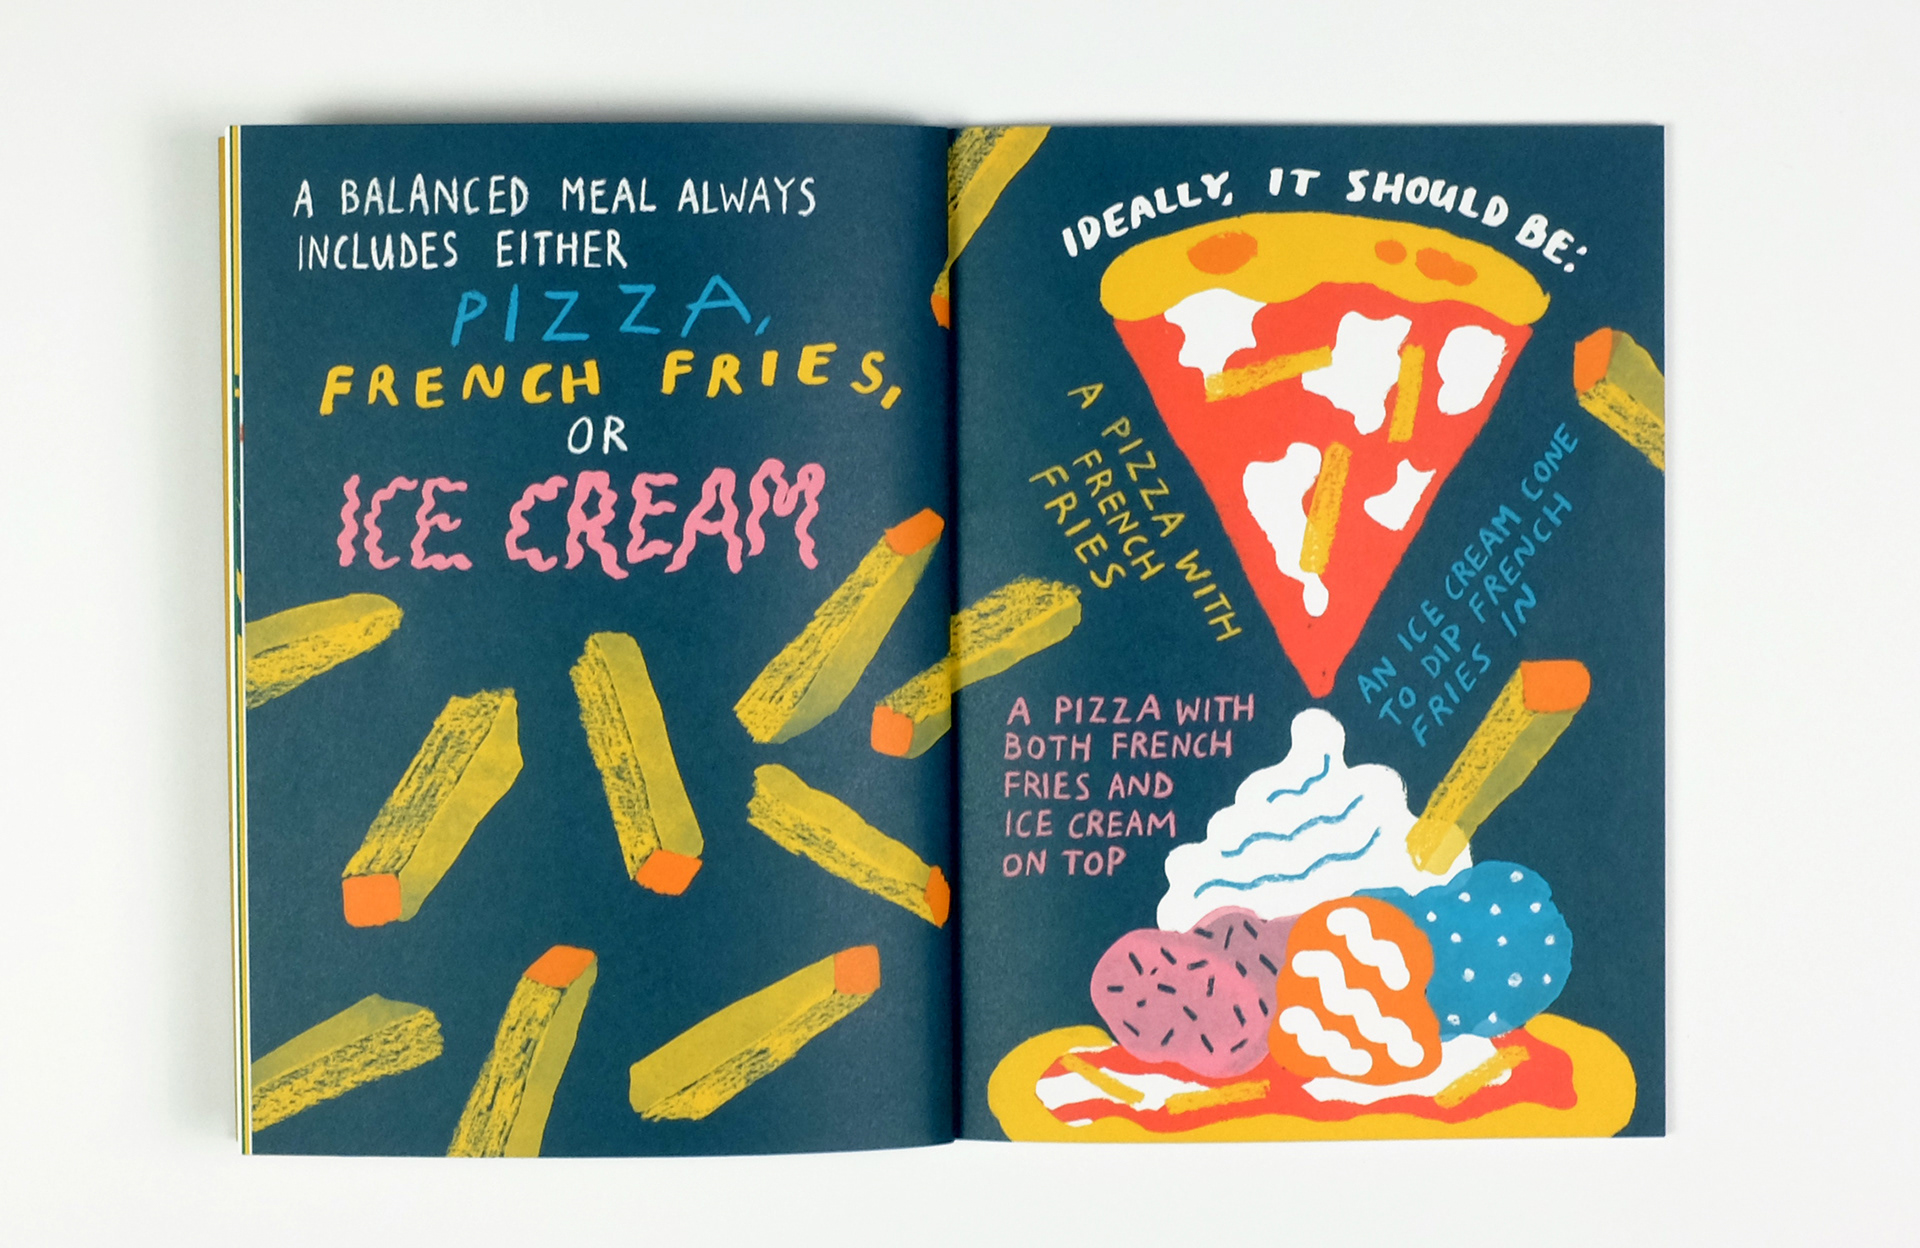 A BALANCED MEAL ALWAYS
INCLUDES EITHER
PIZZA,
FRENCH FRIES,
OR
ICE CREAM
IDEALLY, IT SHOULD BE:
A PIZZA WITH
FRENCH
FRIES
AN ICE CREAM CONE
TO DIP FRENCH
FRIES IN
A PIZZA WITH
BOTH FRENCH
FRIES AND
ICE CREAM
ON TOP